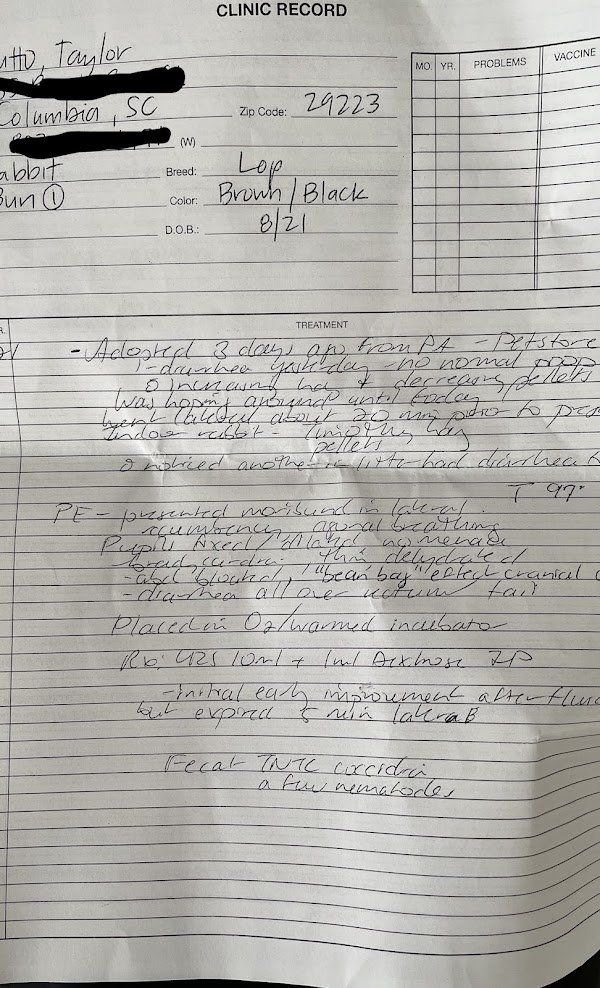 CLINIC RECORD
utto, Taylor
Columbia, SC
Zip Code: 29223
(W)
abbit
Breed: Lop
Bun ①
Color: Brown/Black
D.O.B.: 8/21
MO. YR. PROBLEMS VACCINE
R.
TREATMENT
- Adopted 3 days ago from PA - Petstore
- diarrhea yesterday - no normal poop
increasing hay & decreasing pellets
Was hopping around until today
went lateral about 20 min prior to pres
Indoor rabbit - timothy hay
pellets
O noticed another in litter had diarrhea
T 97.
PE - presented moribund in lateral
recumbency agonal breathing
Pupils fixed/dilated no menace
bradycardia, thin, dehydrated
- abd bloated, "bean bag" effect cranial
- diarrhea all over rectum tail
Placed in O2/warmed incubator
Rx: LRS 10ml + 1ml Dextrose IP
- initial early improvement after fluid
but expired 5 min later
Fecal TNTC coccidia
a few nematodes